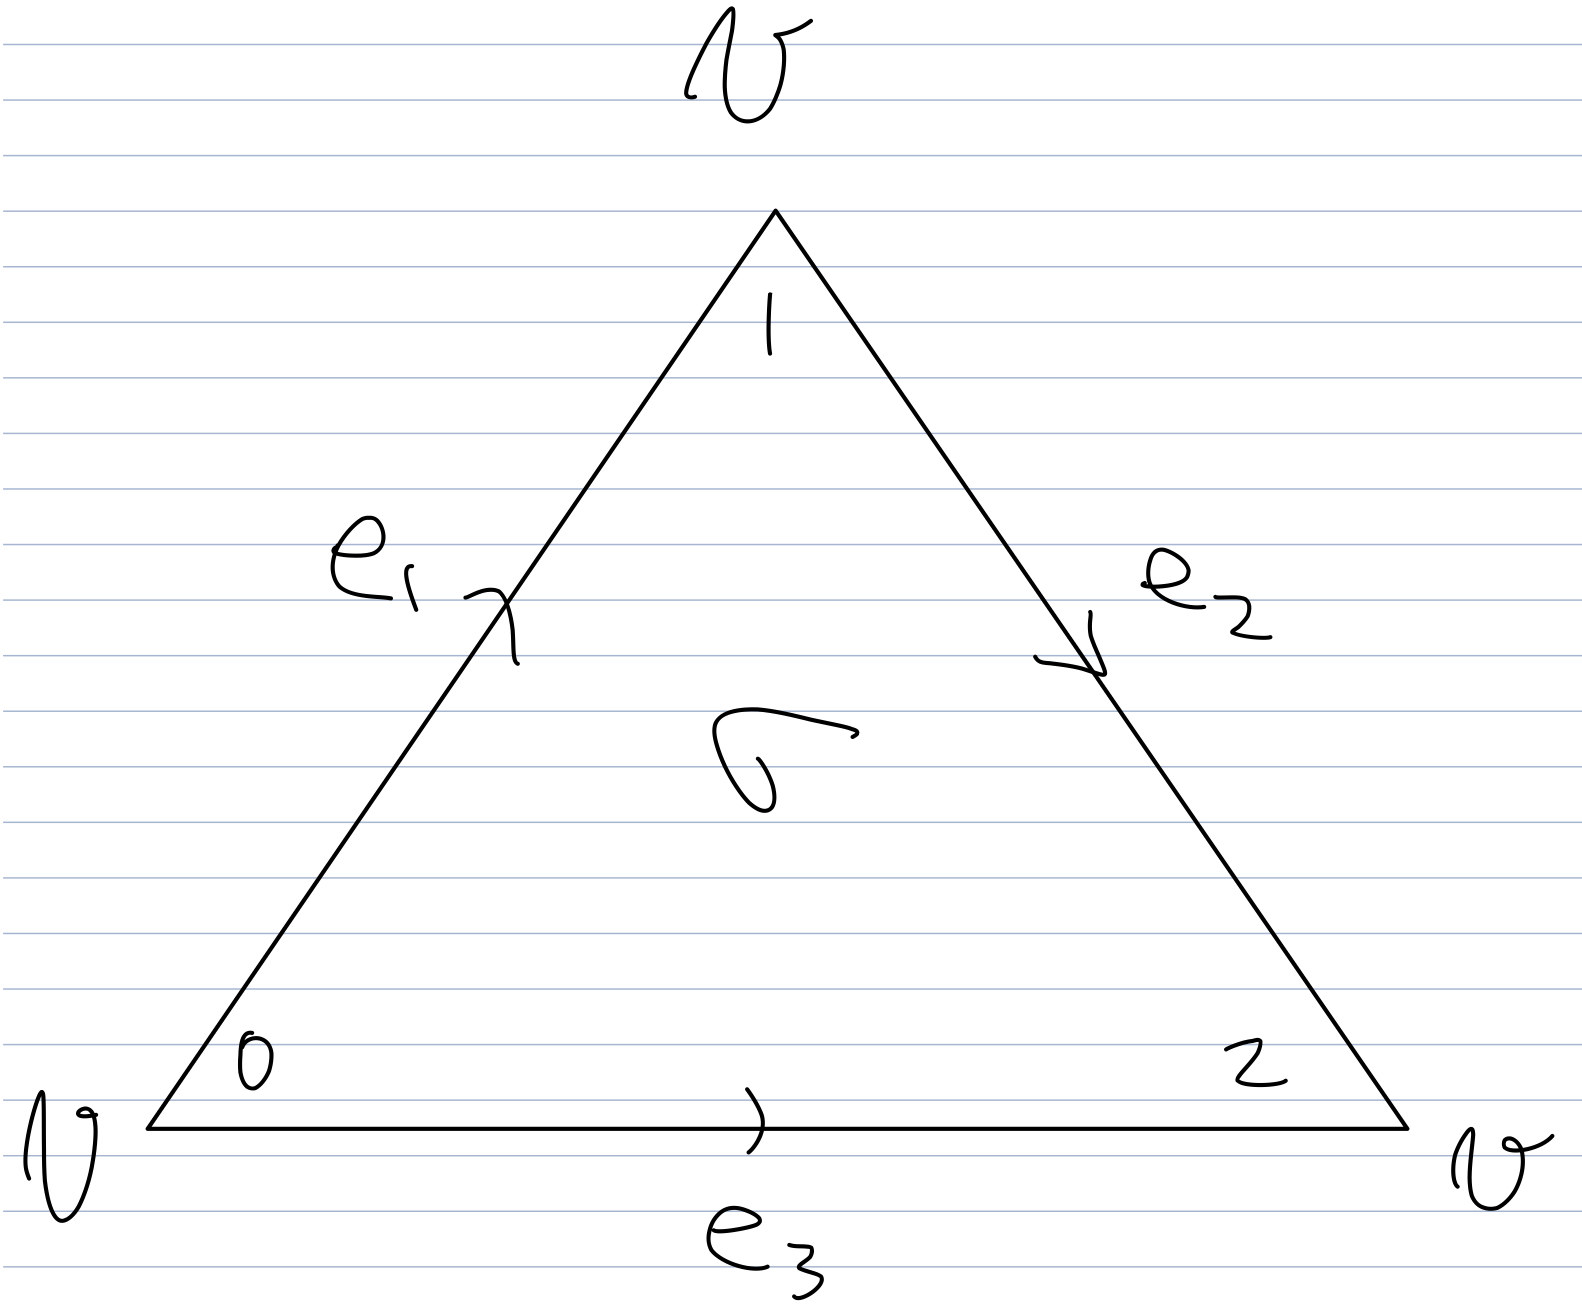 v
1
e₁
e₂
σ
0
2
v
v
e₃